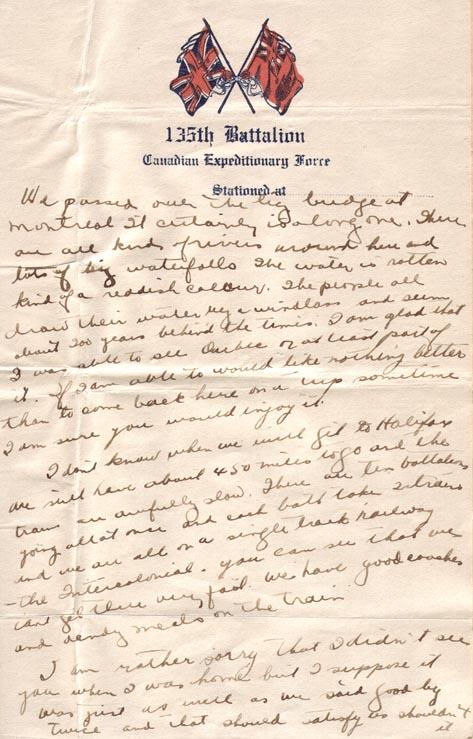 135th Battalion
Canadian Expeditionary Force
Stationed at
We passed over the big bridge at
montreal It certainly is a long one. There
are all kinds of rivers around here and
lots of big waterfalls The water is rotten
kind of a reddish colour. The people all
draw their water by a windlass and seem
about 200 years behind the times. I am glad that
I was able to see Quebec or at least part of
it. If I am able to would like nothing better
than to come back here on a trip sometime
I am sure you would enjoy it.
I don't know when we will get to Halifax
we still have about 450 miles to go and the
trains are awfully slow. There are ten battalions
going all at once and each batt take 2 trains
and we are all on a single track railway
- the Intercolonial. you can see that we
cant get there very fast. We have good coaches
and dandy meals on the train
I am rather sorry that I didn't see
you when I was home but I suppose it
was just as well as we said good by
twice and that should satisfy us shouldn't
it